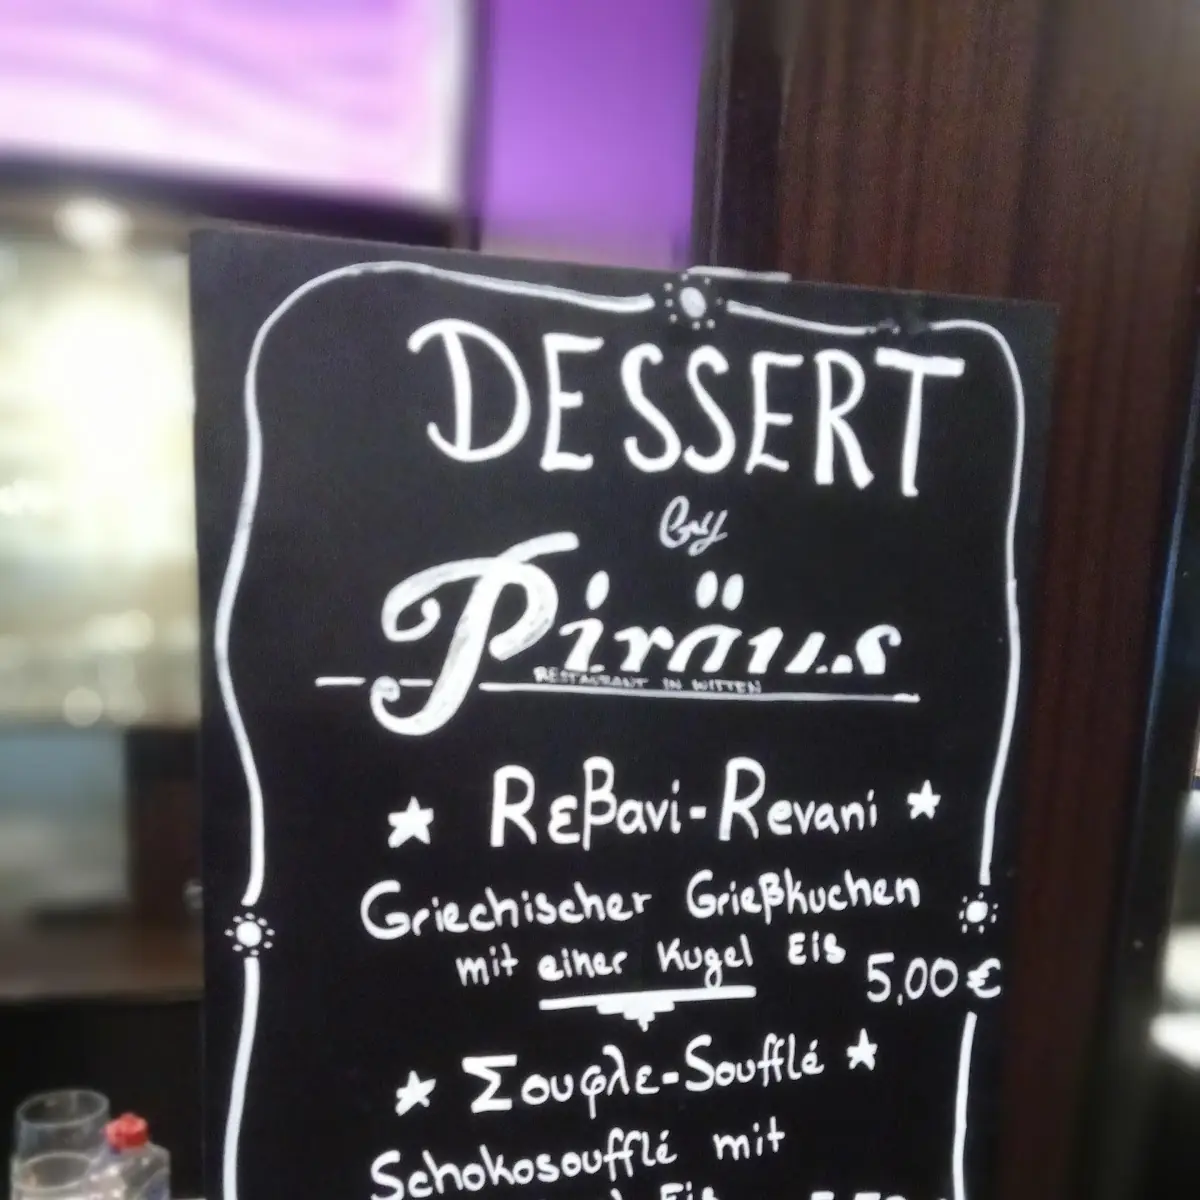 DESSERT
by
Piräus
RESTAURANT IN WITTEN
Rεβavi-Revani
Griechischer Grießkuchen
mit einer Kugel Eis
5,00 €
Σουφλε-Soufflé
Schokosoufflé mit
Eis